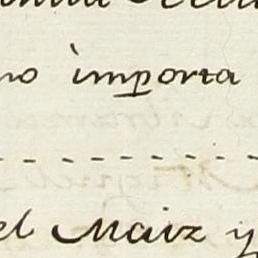 no importa
el Maiz y